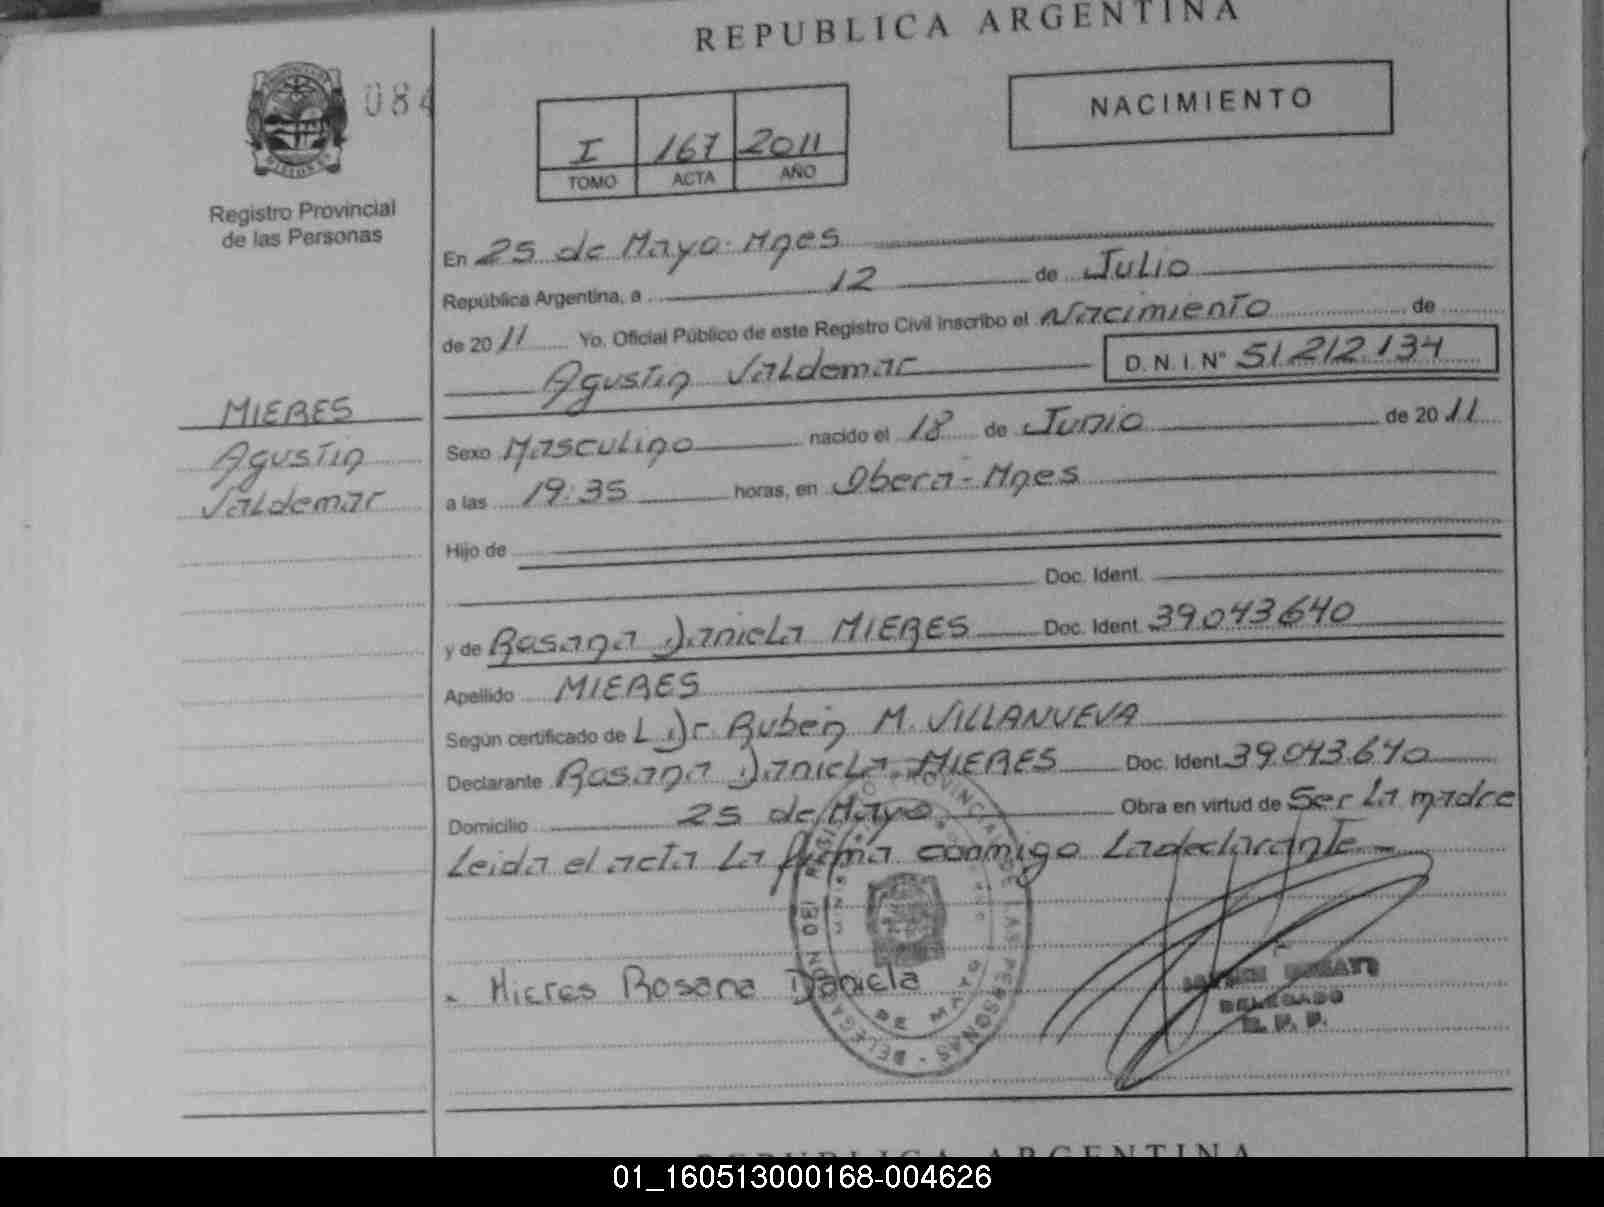 REPUBLICA ARGENTINA
084
NACIMIENTO
I 167 2011
TOMO ACTA AÑO
Registro Provincial
de las Personas
En 25 de Mayo. Mnes
República Argentina, a 12 de Julio
de 2011 Yo, Oficial Público de este Registro Civil inscribo el Nacimiento de
Agustin Valdemar D. N. I. N° 51.212.134
MIERES
Agustin
Valdemar
Sexo Masculino nacido el 18 de Junio de 2011
a las 19:35 horas, en Obera - Mnes
Hijo de
Doc. Ident.
y de Rosana Daniela MIERES Doc. Ident. 39.043.640
Apellido MIERES
Según certificado de L Dr. Ruben M. VILLANUEVA
Declarante Rosana Daniela MIERES Doc. Ident. 39.043.640
Domicilio 25 de Mayo Obra en virtud de Ser La madre
Leida el acta La firma conmigo La declarante
Mieres Rosana Daniela
DELEGADO
R. P. P.
REPUBLICA ARGENTINA
01_160513000168-004626